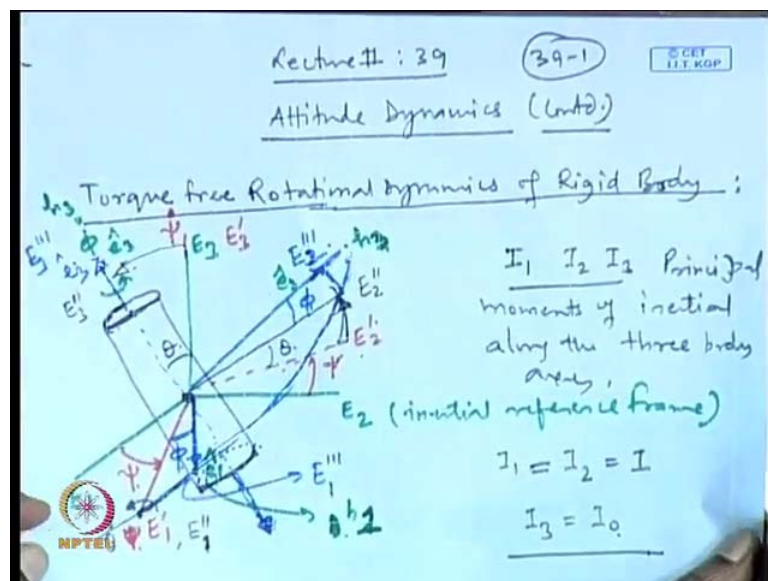 Lecture # : 39
39-1
© CET
I.I.T. KGP
Attitude Dynamics (Contd.)
Torque free Rotational Dynamics of Rigid Body :
ψ
E3 E3'
E3'''
φ ê3
E3''
θ
E2'''
φ
E2''
θ
E2'
ψ
E2 (inertial reference frame)
I1 I2 I3 Principal
moments of inertial
along the three body
axes,
I1 = I2 = I
I3 = I0
ψ
φ
E1'''
E1', E1''
NPTEL